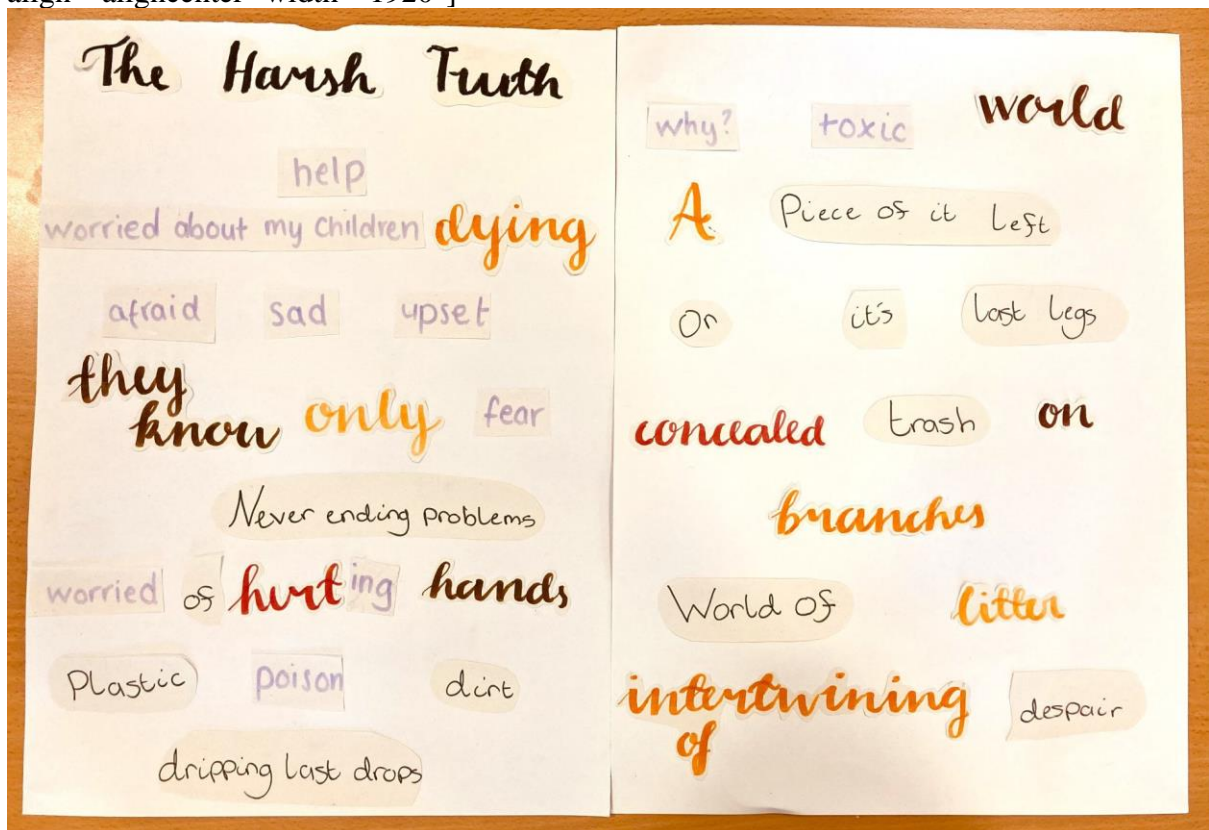 The Harsh Truth
help
worried about my children dying
afraid sad upset
they know only fear
Never ending problems
worried of hurting hands
Plastic poison dirt
dripping last drops
why? toxic world
A Piece of it Left
On it's last legs
concealed trash on
branches
World of litter
intertwining of despair